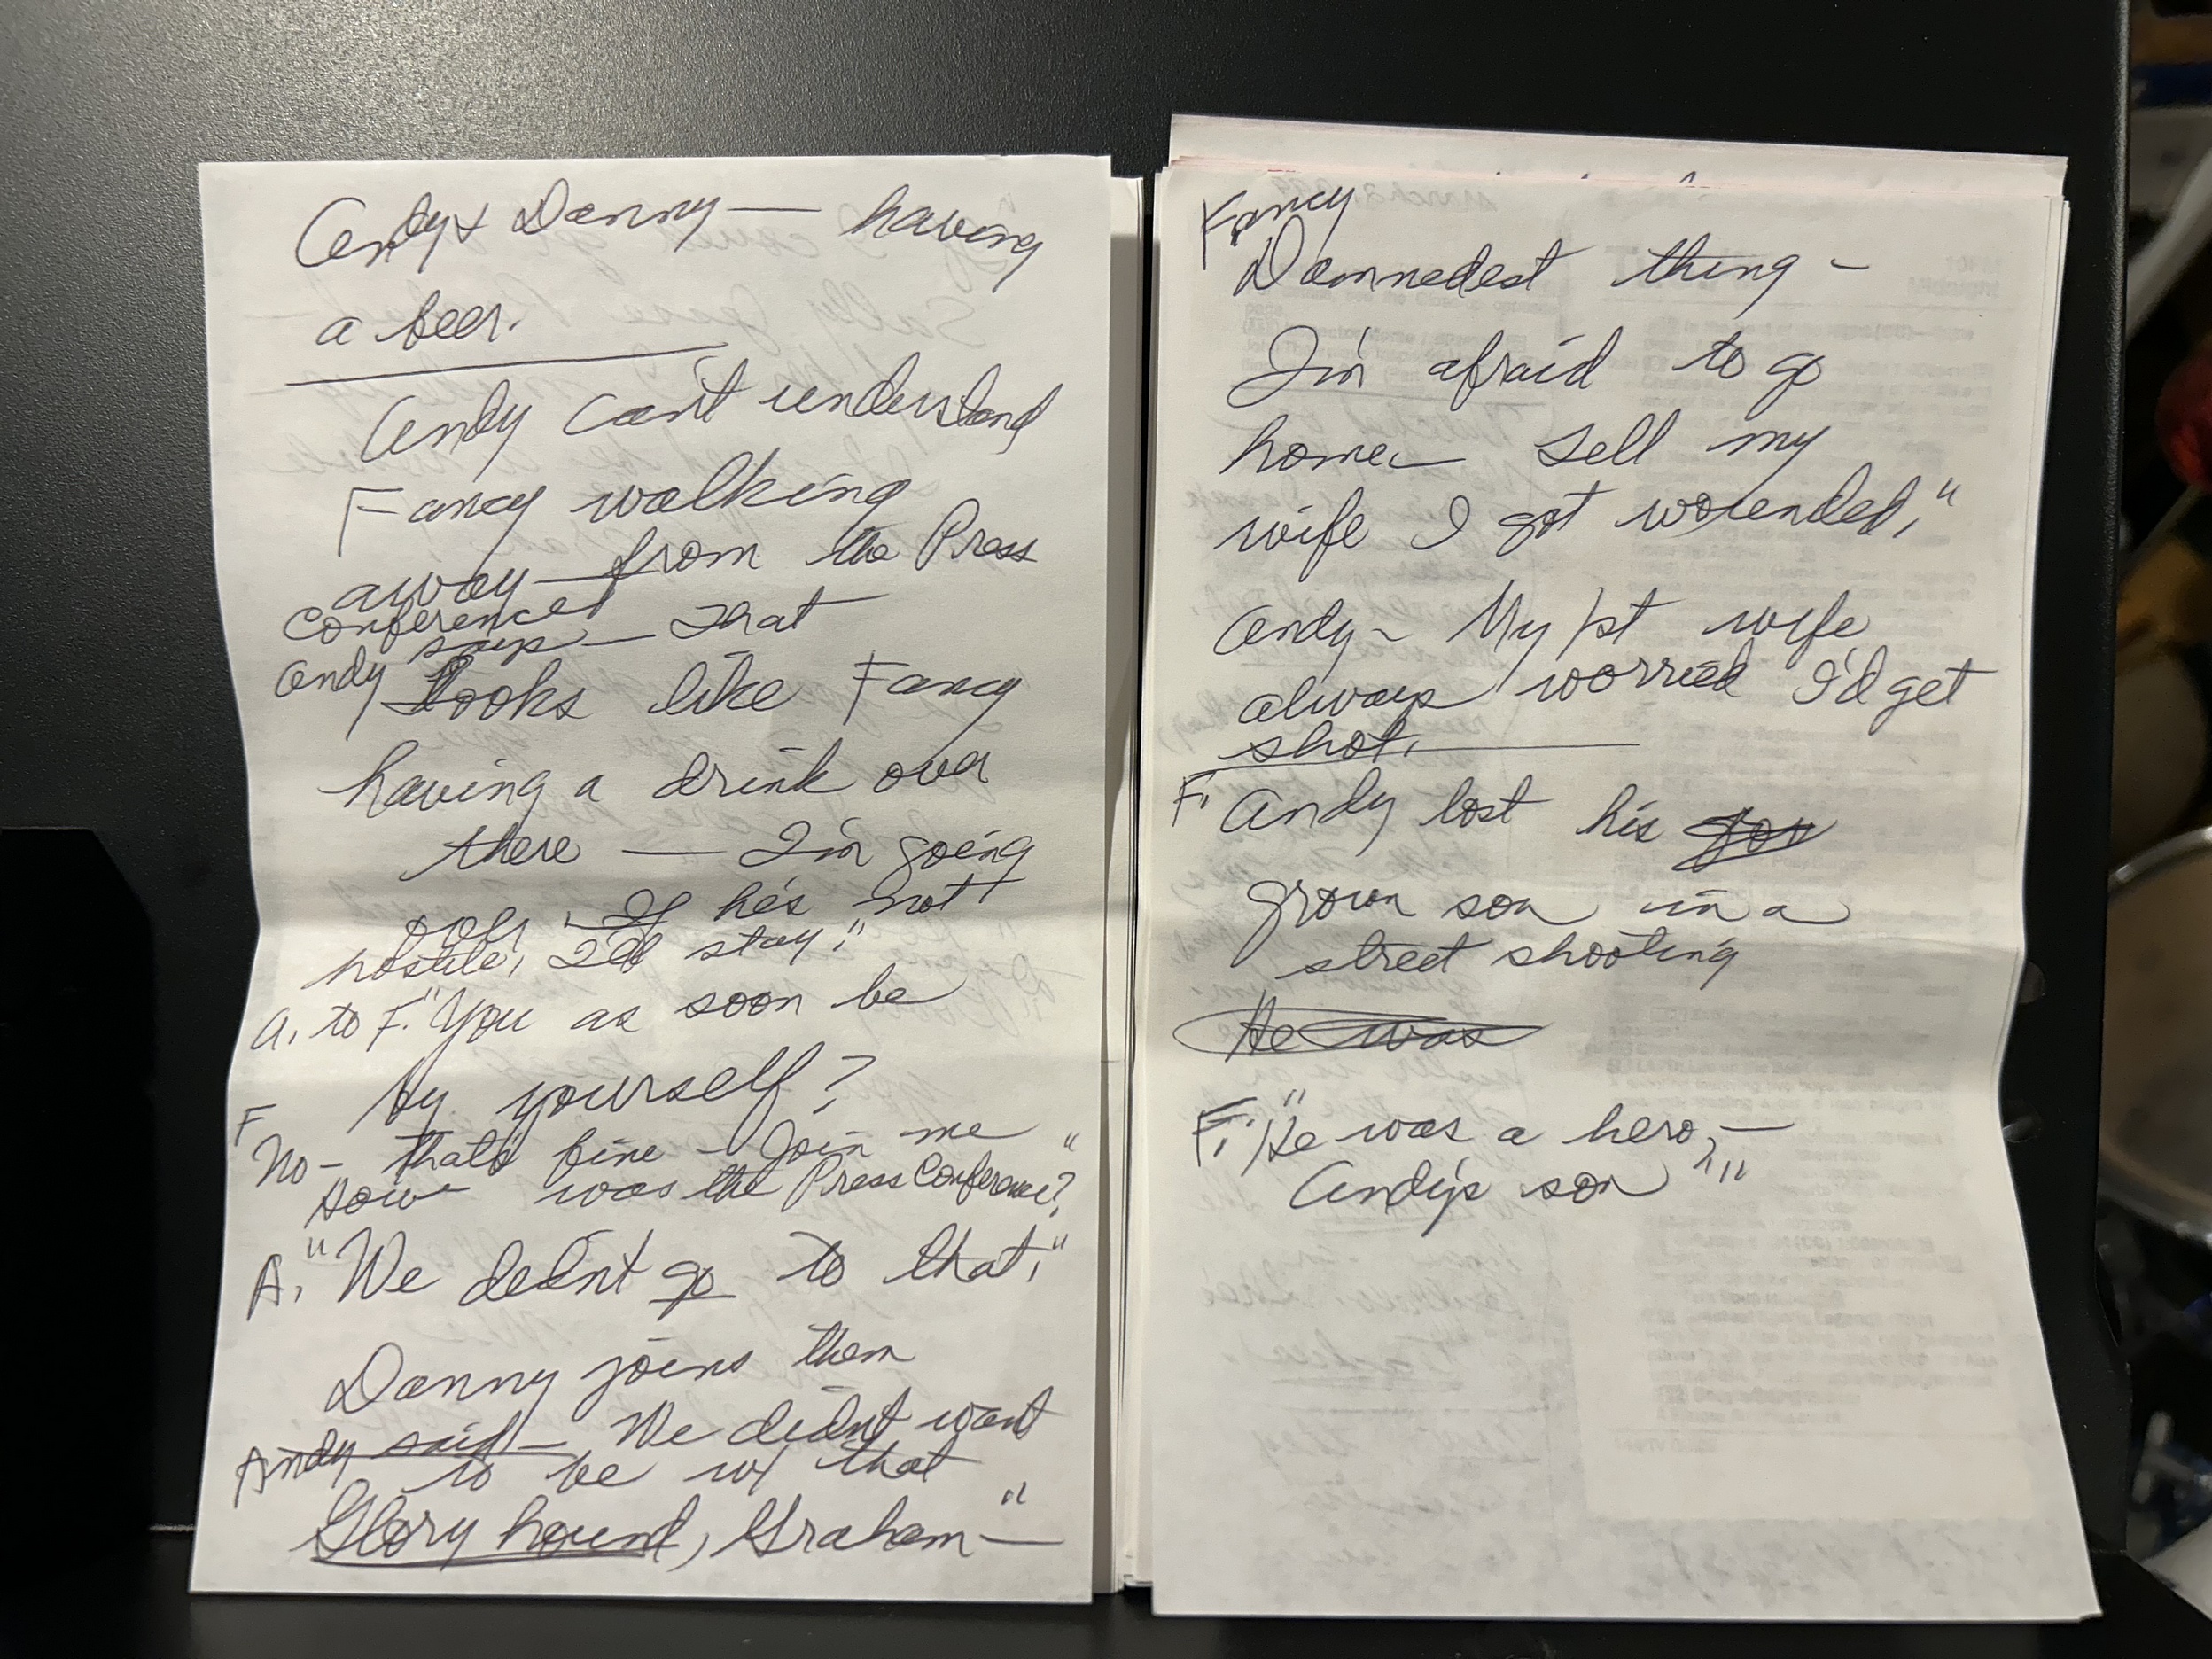 Andy & Danny — having
a beer.
Andy can't understand
Fancy walking
away from the Press
Conference
Andy says — that
Looks like Fancy
having a drink over
there — I'm going
over, If he's not
hostile, I'll stay."
A. to F. "You as soon be
by yourself?
F
No — that's fine — Join me
How was the Press Conference?"
A. "We didn't go to that."
Danny joins them
Andy said — We didn't want
to be w/ that
Glory hound, Graham —"
Fancy
Damnedest thing —
I'm afraid to go
home — tell my
wife I got wounded,"
Andy — My 1st wife
always worried I'd get
shot.
F. Andy lost his
grown son in a
street shooting
He was
F. "He was a hero, —
Andy's son"